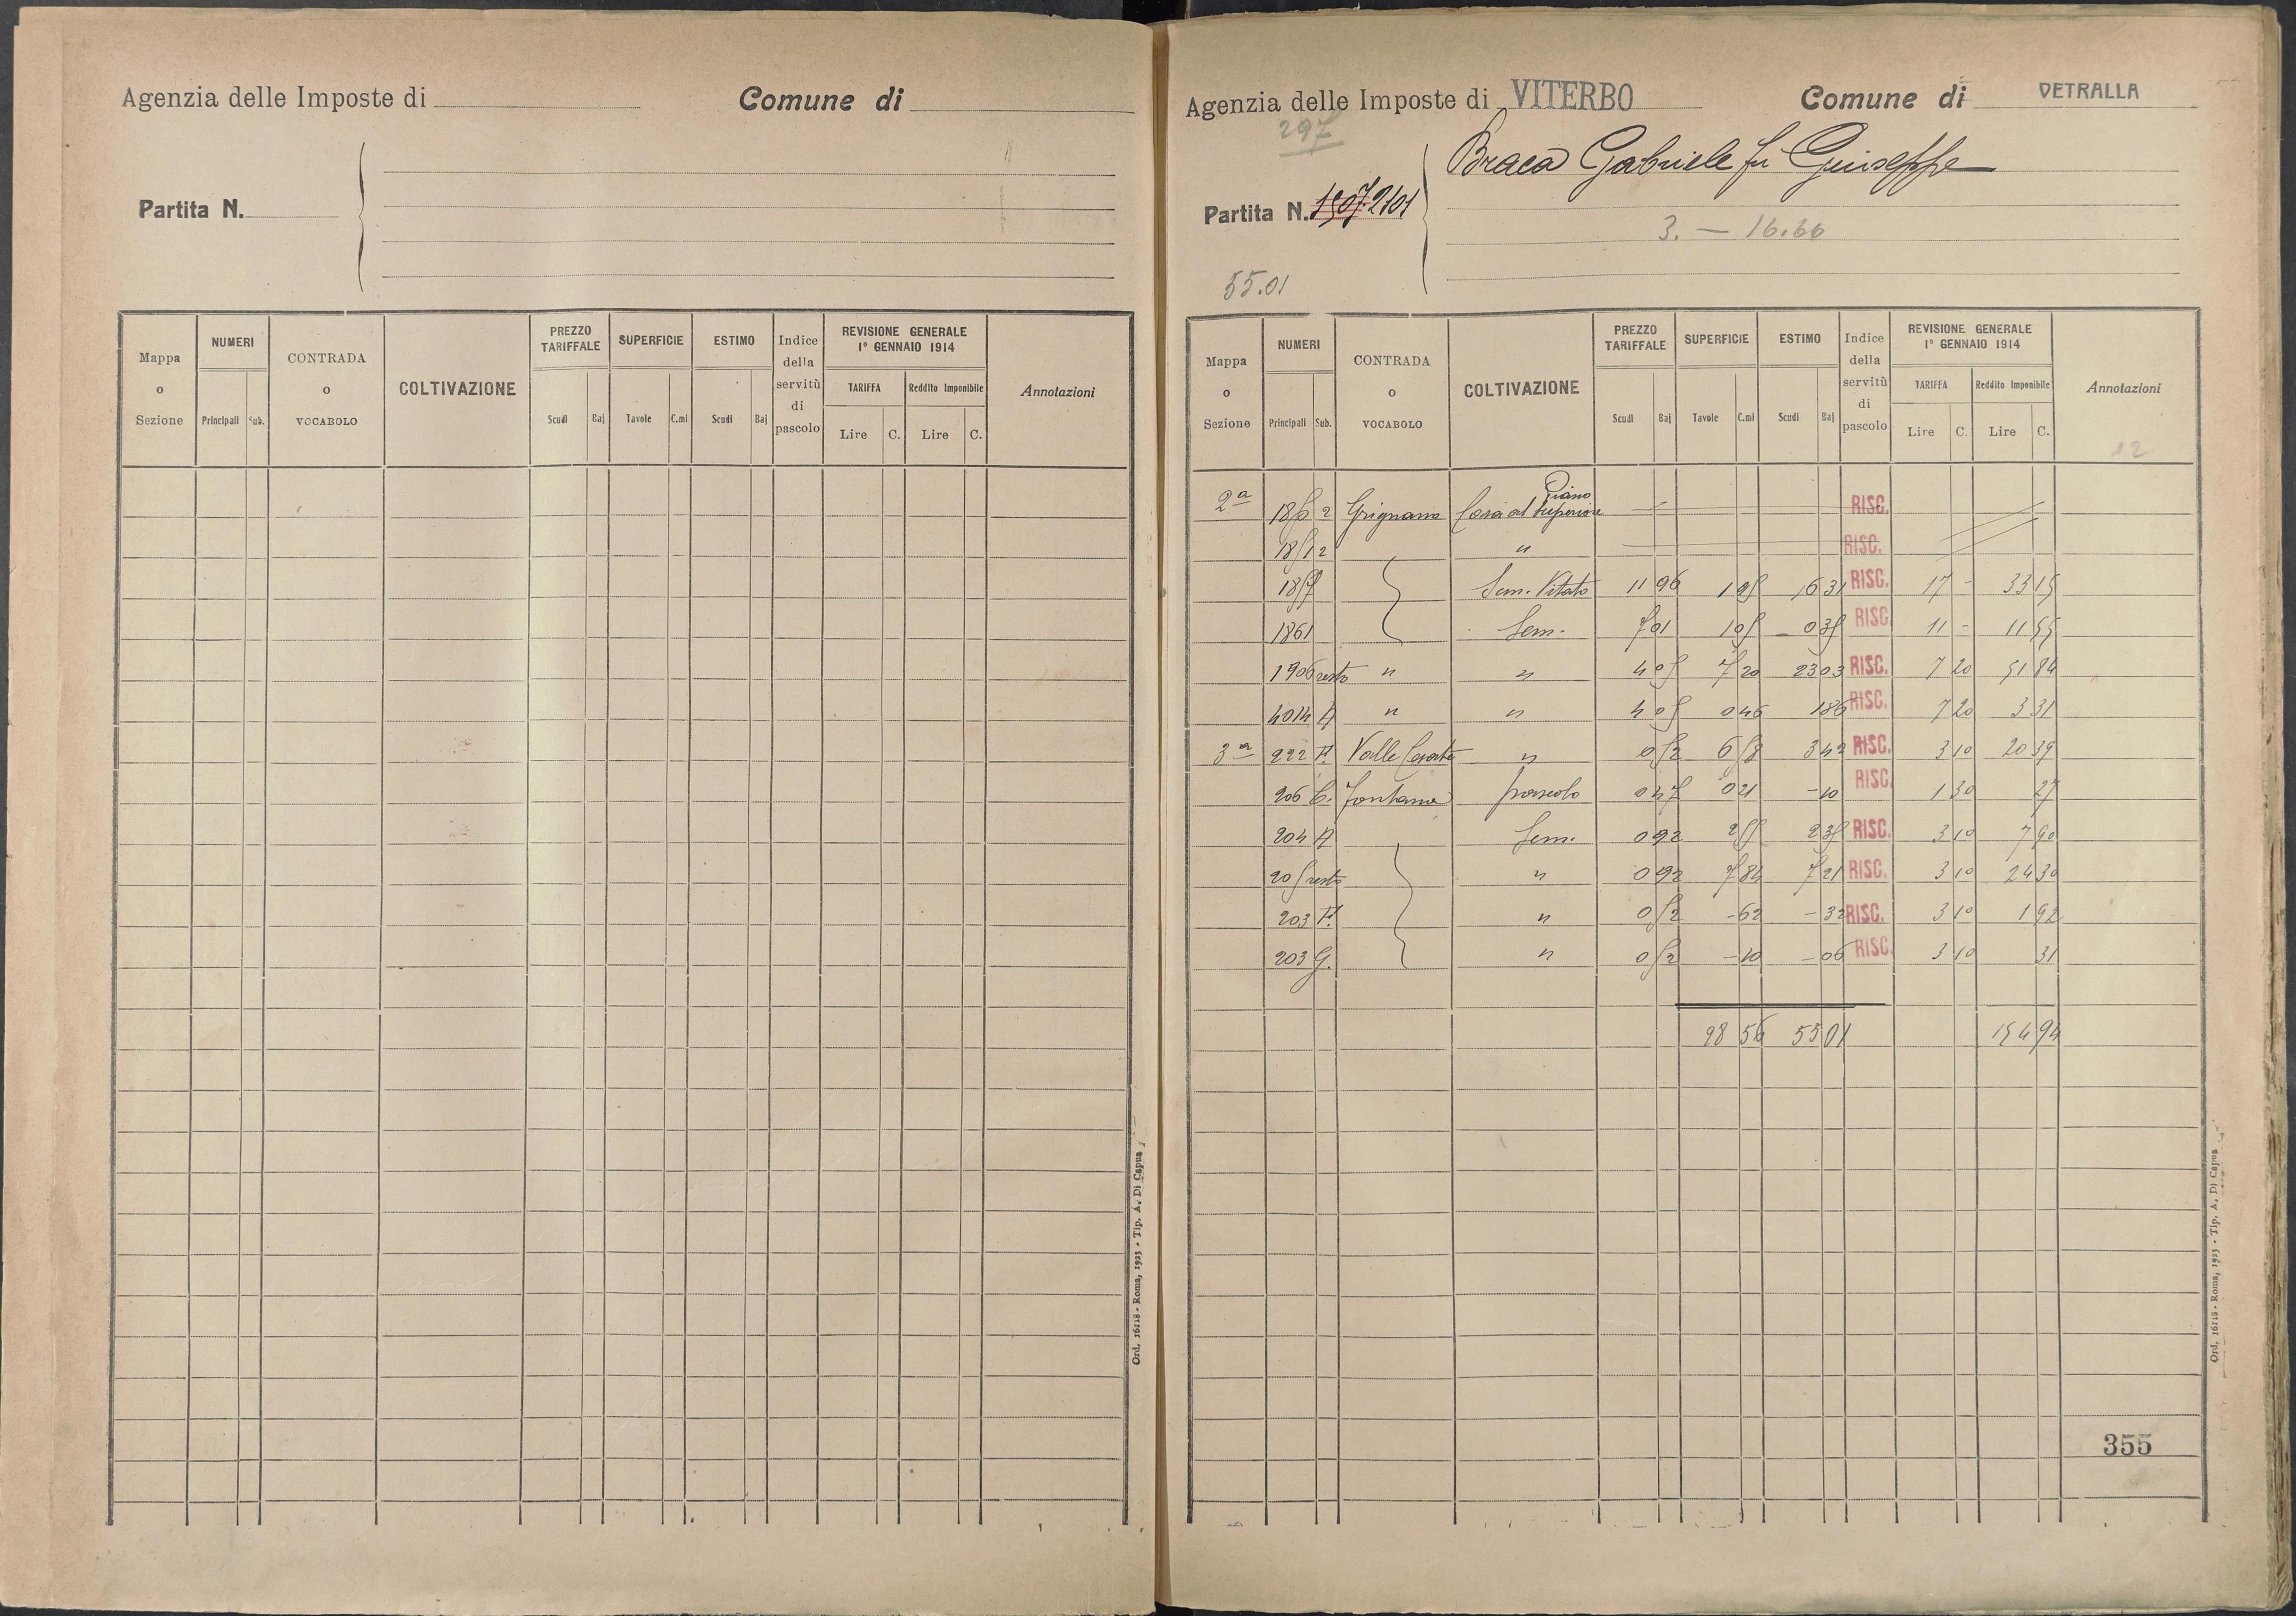 Agenzia delle Imposte di Comune di
Partita N.
Mappa o Sezione
NUMERI Principali Sub.
CONTRADA o VOCABOLO
COLTIVAZIONE
PREZZO TARIFFALE Scudi Baj
SUPERFICIE Tavole C.mi
ESTIMO Scudi Baj
Indice della servitù di pascolo
REVISIONE GENERALE 1° GENNAIO 1914
TARIFFA Lire C.
Reddito Imponibile Lire C.
Annotazioni
Ord. 16118 - Roma, 1923 - Tip. A. Di Capua
Agenzia delle Imposte di VITERBO Comune di VETRALLA
297
Braca Gabriele fu Giuseppe
Partita N. 2101
3. — 16.66
55.01
Mappa o Sezione
NUMERI Principali Sub.
CONTRADA o VOCABOLO
COLTIVAZIONE
PREZZO TARIFFALE Scudi Baj
SUPERFICIE Tavole C.mi
ESTIMO Scudi Baj
Indice della servitù di pascolo
REVISIONE GENERALE 1° GENNAIO 1914
TARIFFA Lire C.
Reddito Imponibile Lire C.
Annotazioni
12
2ª 2 Grignano Casa al Piano Superiore RISC.
2 " RISC.
1857 Sem. Vitato 11 96 1 95 16 31 RISC. 17 - 33 15
1861 Sem. 7 01 1 05 RISC. 11 - 11 55
1906 resto " " 4 05 7 20 23 03 RISC. 7 20 51 84
4014 A " " 4 05 0 46 1 86 RISC. 7 20 3 31
3ª 222 F. Valle " 0 52 6 58 3 42 RISC. 3 10 20 39
206 C. Fontana pascolo 0 47 0 21 - 10 RISC. 1 30 27
204 A Sem. 0 92 2 55 2 35 RISC. 3 10 7 90
205 resto " 0 92 7 84 7 21 RISC. 3 10 24 30
203 F. " 0 52 - 62 - 32 RISC. 3 10 1 92
203 G. " 0 52 - 10 - 06 RISC. 3 10 31
28 56 55 01 154 94
355
Ord. 16118 - Roma, 1923 - Tip. A. Di Capua